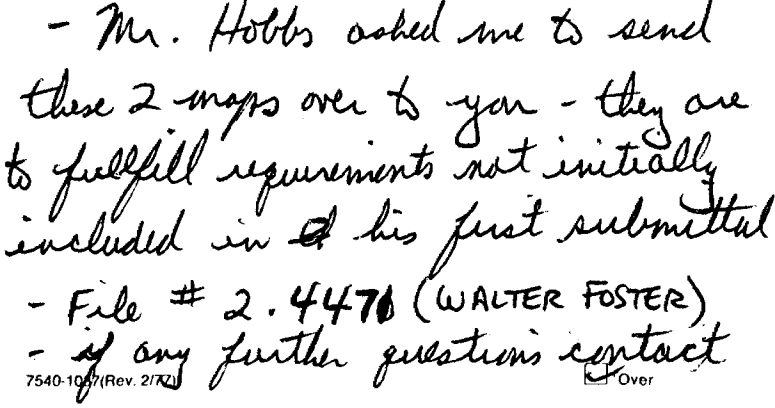 - Mr. Hobbs asked me to send
these 2 maps over to you - they are
to fullfill requirements not initially
included in his first submittal
- File # 2.4471 (WALTER FOSTER)
- if any further questions contact
7540-1037(Rev. 2/77) Over